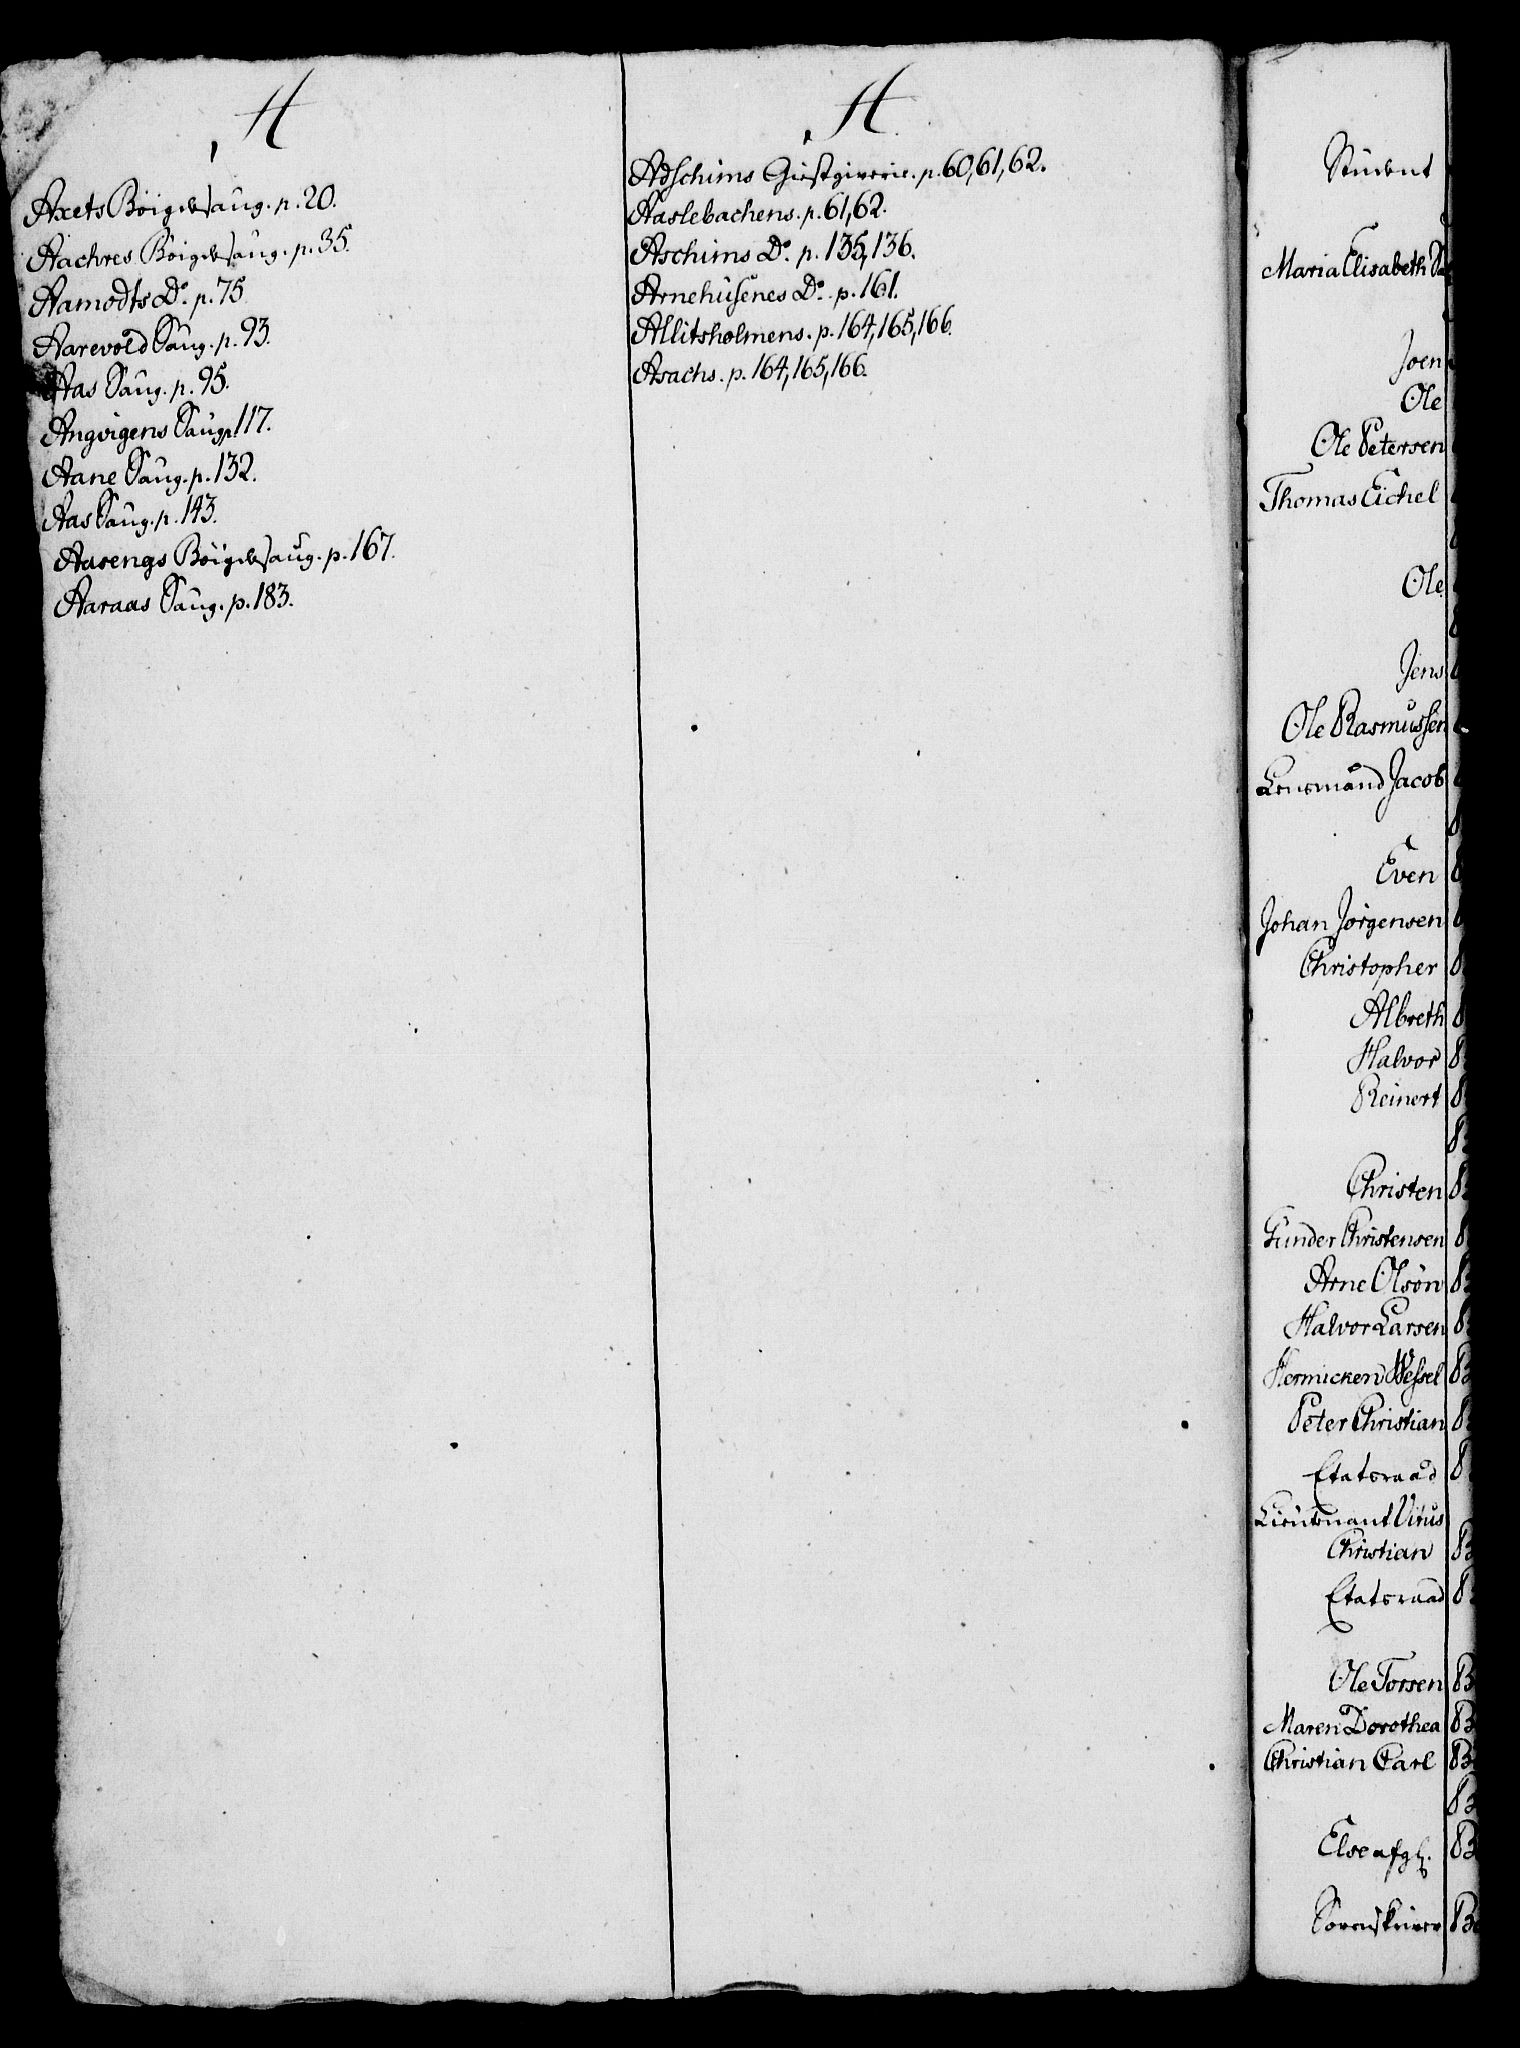 A
Axets Böigdesaug. p. 20.
Aachres Böigdesaug. p. 35.
Aamodts Do. p. 75
Aarevold Saug. p. 93.
Aas Saug. p. 95.
Angvigens Saug p. 117.
Aane Saug. p. 132.
Aas Saug. p. 143.
Aasengs Böigdesaug. p. 167.
Aaraas Saug. p. 183.
A
Adschims Giestgiverie. p. 60, 61, 62.
Aaslebachens. p. 61, 62.
Aschims Do. p. 135, 136.
Arnehusenes Do. p. 161.
Allitsholmens. p. 164, 165, 166.
Asachs. p. 164, 165, 166.
Student
Maria Elisabeth
Joen
Ole
Ole Petersen
Thomas Eichel
Ole
Jens
Ole Rasmussen
Lensmand Jacob
Even
Johan Jørgensen
Christopher
Albreth
Halvor
Reinert
Christen
Gunder Christensen
Arne Olsøn
Halvor Larsen
Hermicken Wessel
Peter Christian
Etatsraad
Lieutenant Vitus
Christian
Etatsraad
Ole Torsen
Maren Dorothea
Christian Carl
Else afgl.
Sorenskriver